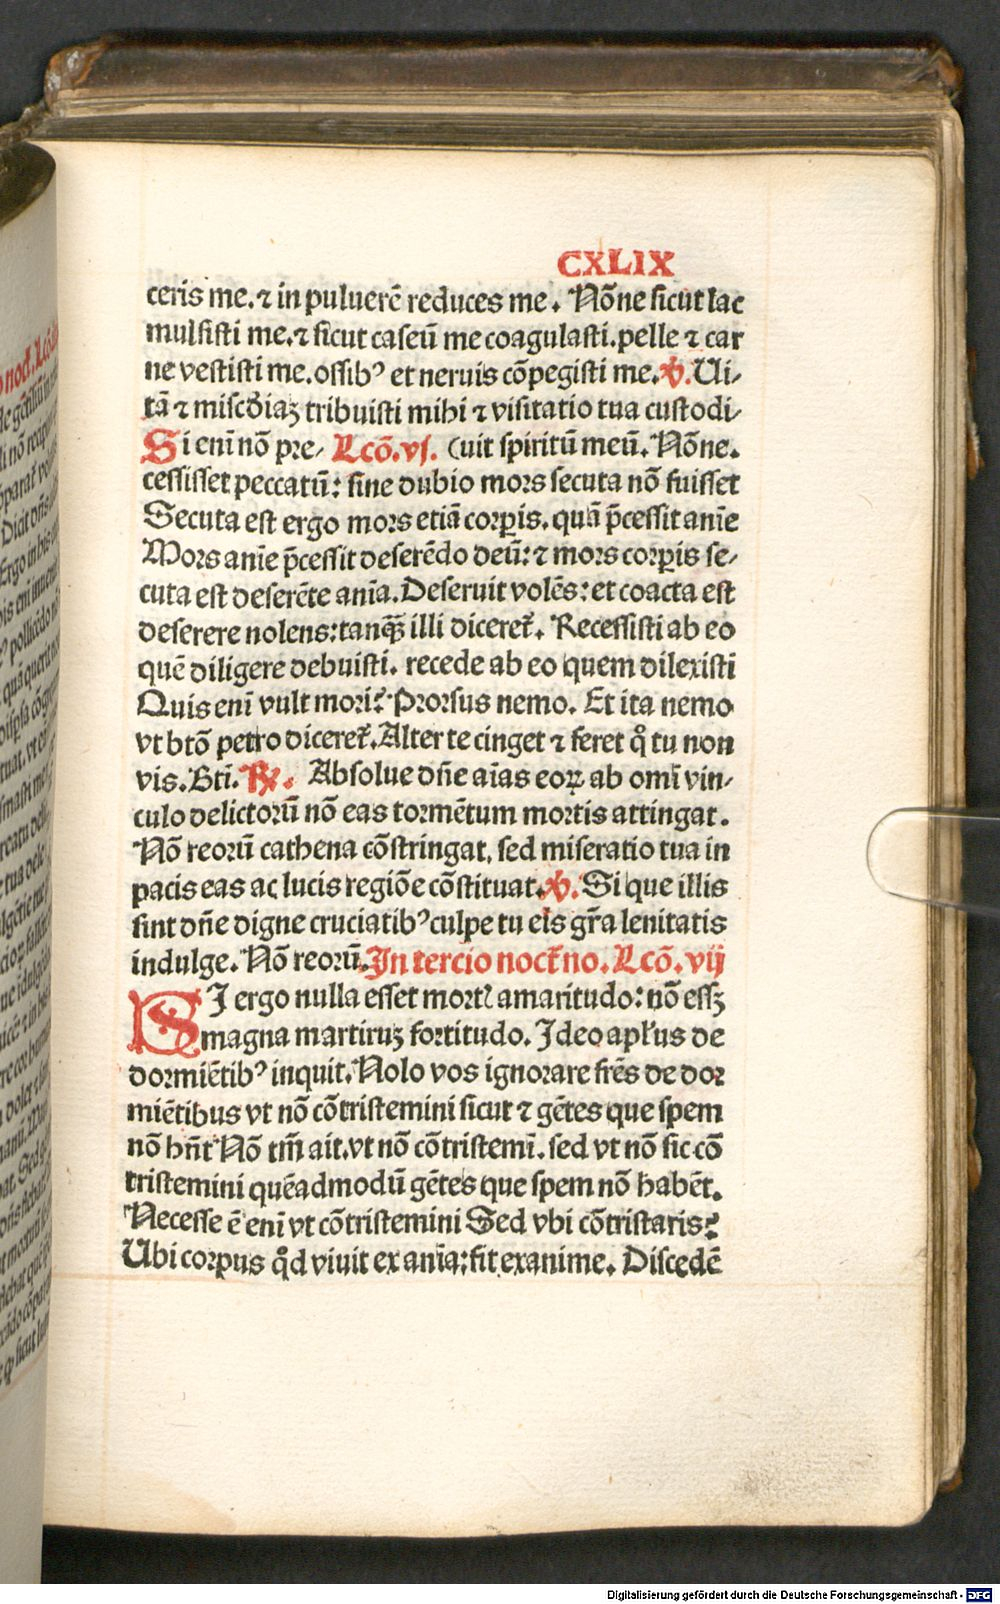 CXLIX
ceris me. ⁊ in puluerē reduces me. Nōne sicut lac
mulsisti me. ⁊ sicut caseū me coagulasti. pelle ⁊ car
ne vestisti me. ossibꝰ et neruis cōpegisti me. ℣. Ui⸗
tā ⁊ misc̄diaꝫ tribuisti mihi ⁊ visitatio tua custodi⸗
Si eni nō pre⸗ Lcō. vj. (uit spiritū meū. Nōne.
cessisset peccatū: sine dubio mors secuta nō fuisset
Secuta est ergo mors etiā corꝑis. quā p̄cessit anīe
Mors anīe p̄cessit deserēdo deū: ⁊ mors corꝑis se⸗
cuta est deserēte anīa. Deseruit volēs: et coacta est
deserere nolens: tanqꝫ̄ illi diceret̄. Recessisti ab eo
quē diligere debuisti. recede ab eo quem dilexisti
Quis enī vult mori? Prorsus nemo. Et ita nemo
vt btō petro diceret̄. Alter te cinget ⁊ feret q̊ tu non
vis. Bti. ℟. Absolue dn̄e aīas eoꝝ ab omī vin⸗
culo delictorū nō eas tormētum mortis attingat.
Nō reorū cathena cōstringat, sed miseratio tua in
pacis eas ac lucis regiōe cōstituat. ℣. Si que illis
sint dn̄e digne cruciatibꝰ culpe tu eis gr̄a lenitatis
indulge. Nō reorū. In tercio noct̄no. Lcō. vij
SI ergo nulla esset mortꝭ amaritudo: nō essꝫ
magna martiruꝫ fortitudo. Ideo apl̄us de
dormiētibꝰ inquit. Nolo vos ignorare fr̄es de dor
miētibus vt nō cōtristemini sicut ⁊ gētes que spem
nō hn̄t Nō tm̄ ait. vt nō cōtristemī. sed vt nō sic cō
tristemini quēadmodū gētes que spem nō habēt.
Necesse ē enī vt cōtristemini Sed vbi cōtristaris?
Ubi corpus q̊d viuit ex anīa: fit exanime. Discedē
Digitalisierung gefördert durch die Deutsche Forschungsgemeinschaft - DFG